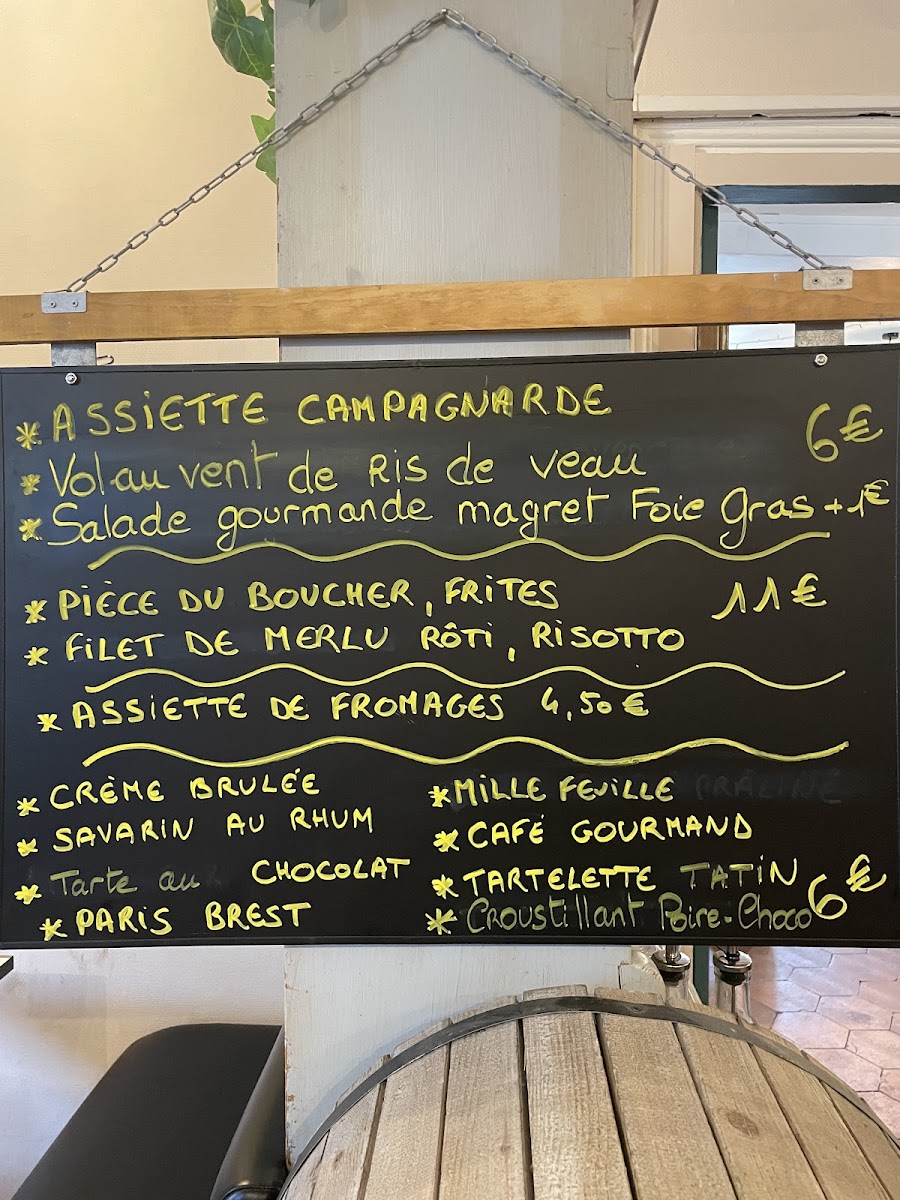 * ASSIETTE CAMPAGNARDE
6€
* Vol au vent de Ris de veau
* Salade gourmande magret Foie gras + 1€
* PIÈCE DU BOUCHER, FRITES 11€
* FILET DE MERLU RÔTI, RISOTTO
* ASSIETTE DE FROMAGES 4,50€
* CRÈME BRULÉE
* SAVARIN AU RHUM
* Tarte au CHOCOLAT
* PARIS BREST
* MILLE FEUILLE PRALINÉ
* CAFÉ GOURMAND
* TARTELETTE TATIN
* Croustillant Poire-Choco
6€